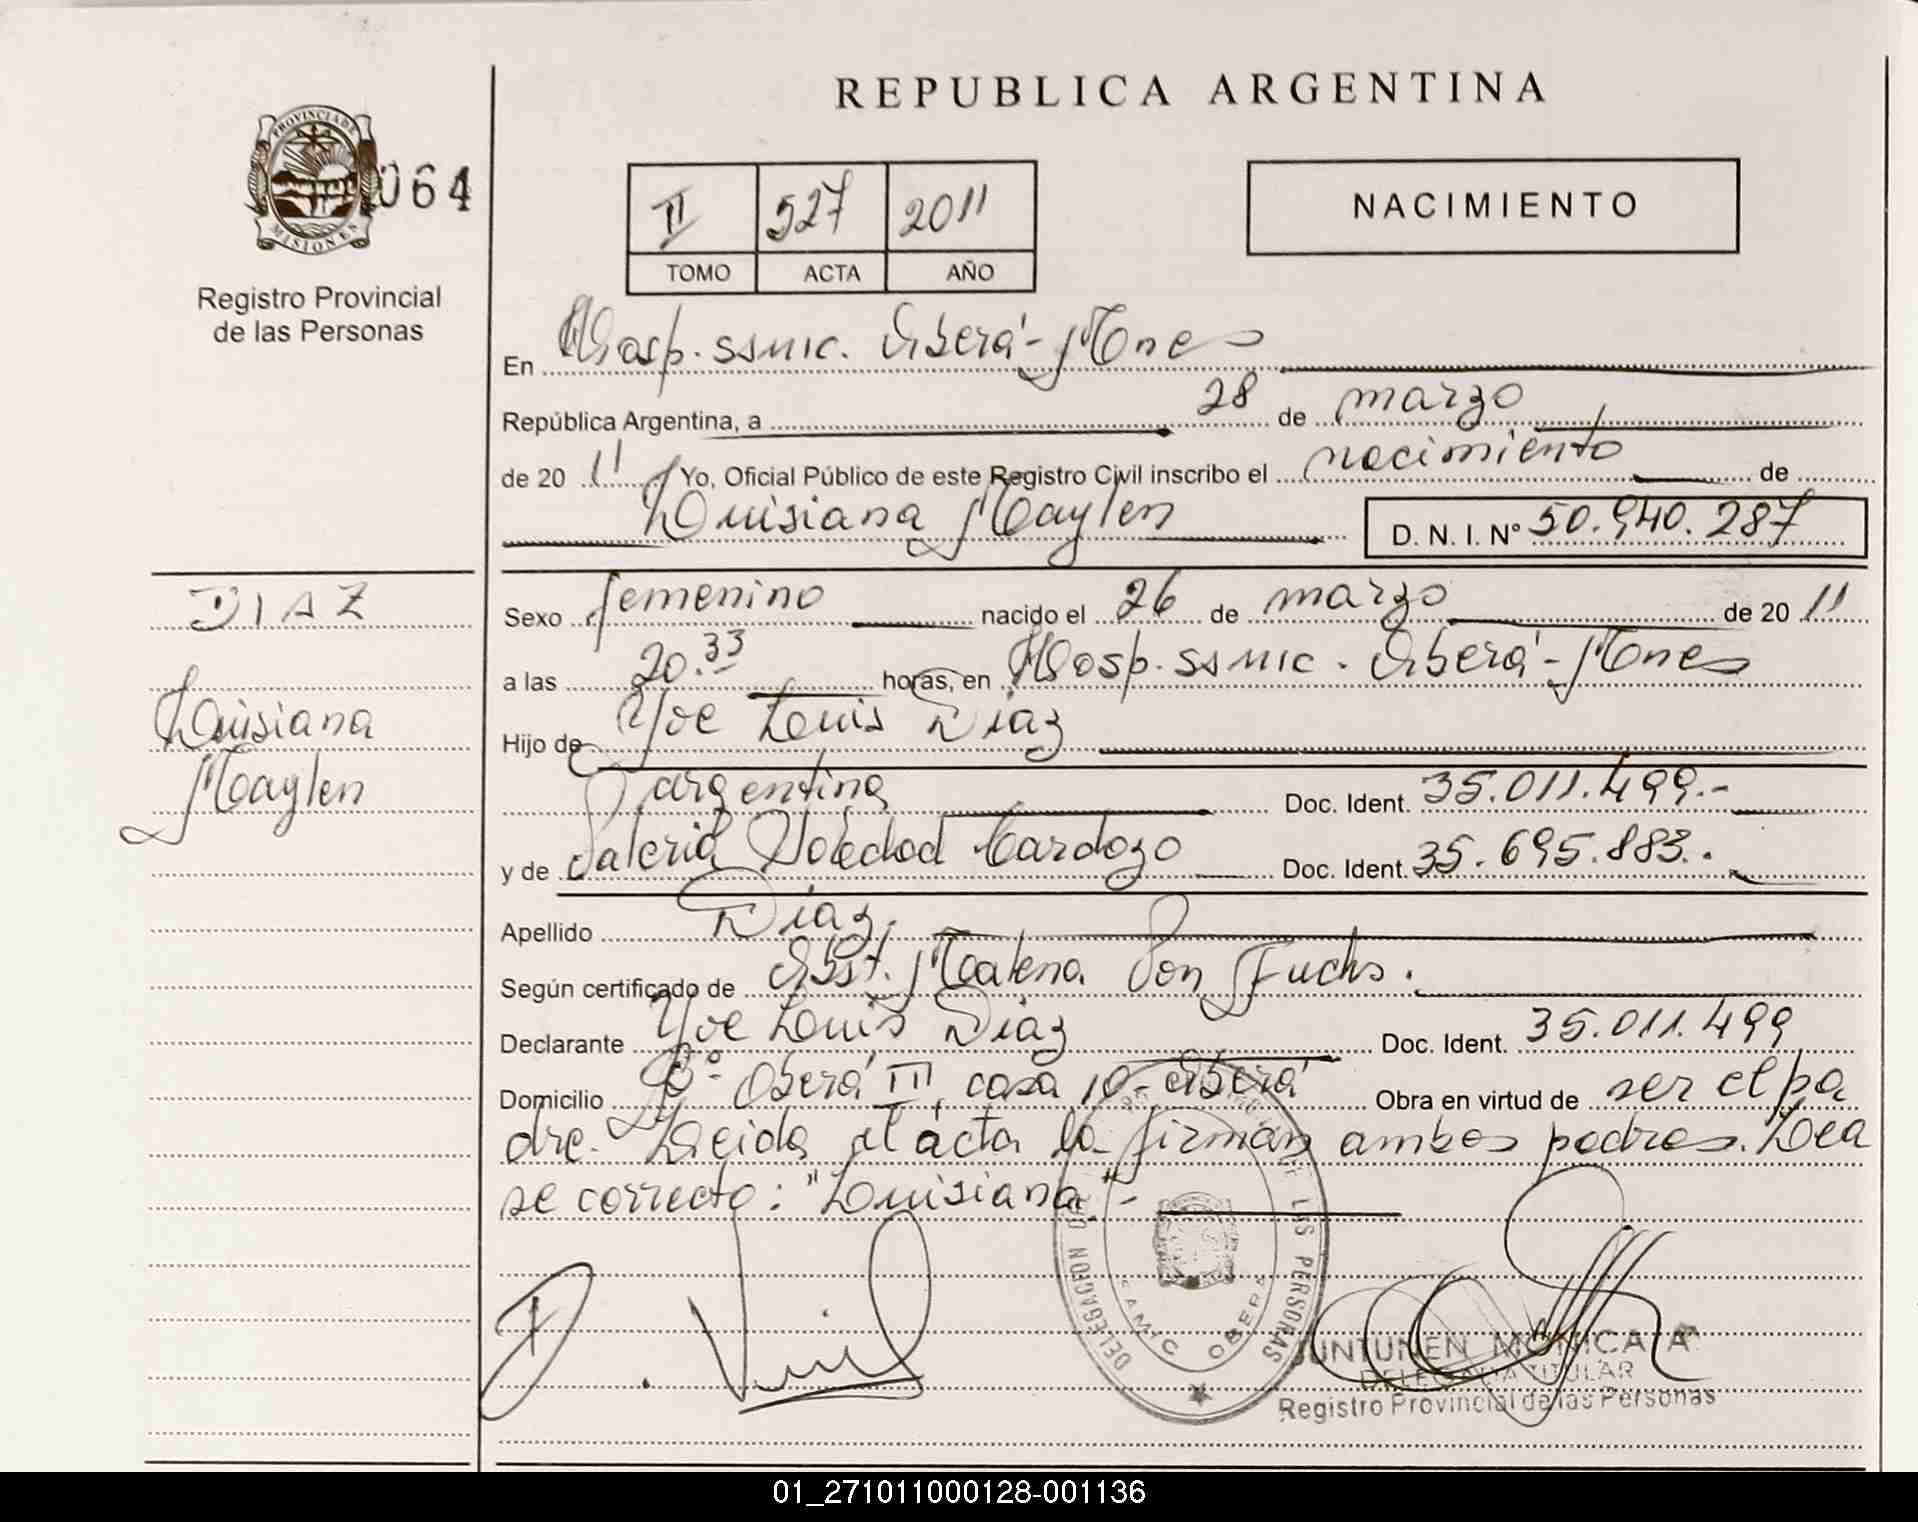 REPUBLICA ARGENTINA
PROVINCIA DE MISIONES
064
Registro Provincial
de las Personas
II 527 2011
TOMO ACTA AÑO
NACIMIENTO
En Hosp. SSMIC. Oberá - Mnes
República Argentina, a 28 de marzo
de 20 11 Yo, Oficial Público de este Registro Civil inscribo el nacimiento de
Luisiana Maylen D. N. I. Nº 50.940.287
DIAZ
Luisiana
Maylen
Sexo femenino nacido el 26 de marzo de 20 11
a las 20.33 horas, en Hosp. SSMIC. Oberá - Mnes
Hijo de Yoe Louis Diaz
argentina Doc. Ident. 35.011.499.-
y de Valeria Soledad Cardozo Doc. Ident. 35.695.883.-
Apellido Diaz.
Según certificado de Obst. Malena Von Fuchs.
Declarante Yoe Louis Diaz Doc. Ident. 35.011.499
Domicilio Bº Oberá III, casa 10 - Oberá Obra en virtud de ser el pa
dre. Leida el acta la firman ambos padres. Lea
se correcto: "Luisiana" -
DELEGACION DE LAS PERSONAS
SAMIC OBERA
JUNTUNEN MONICA A
DELEGADA TITULAR
Registro Provincial de las Personas
01_271011000128-001136